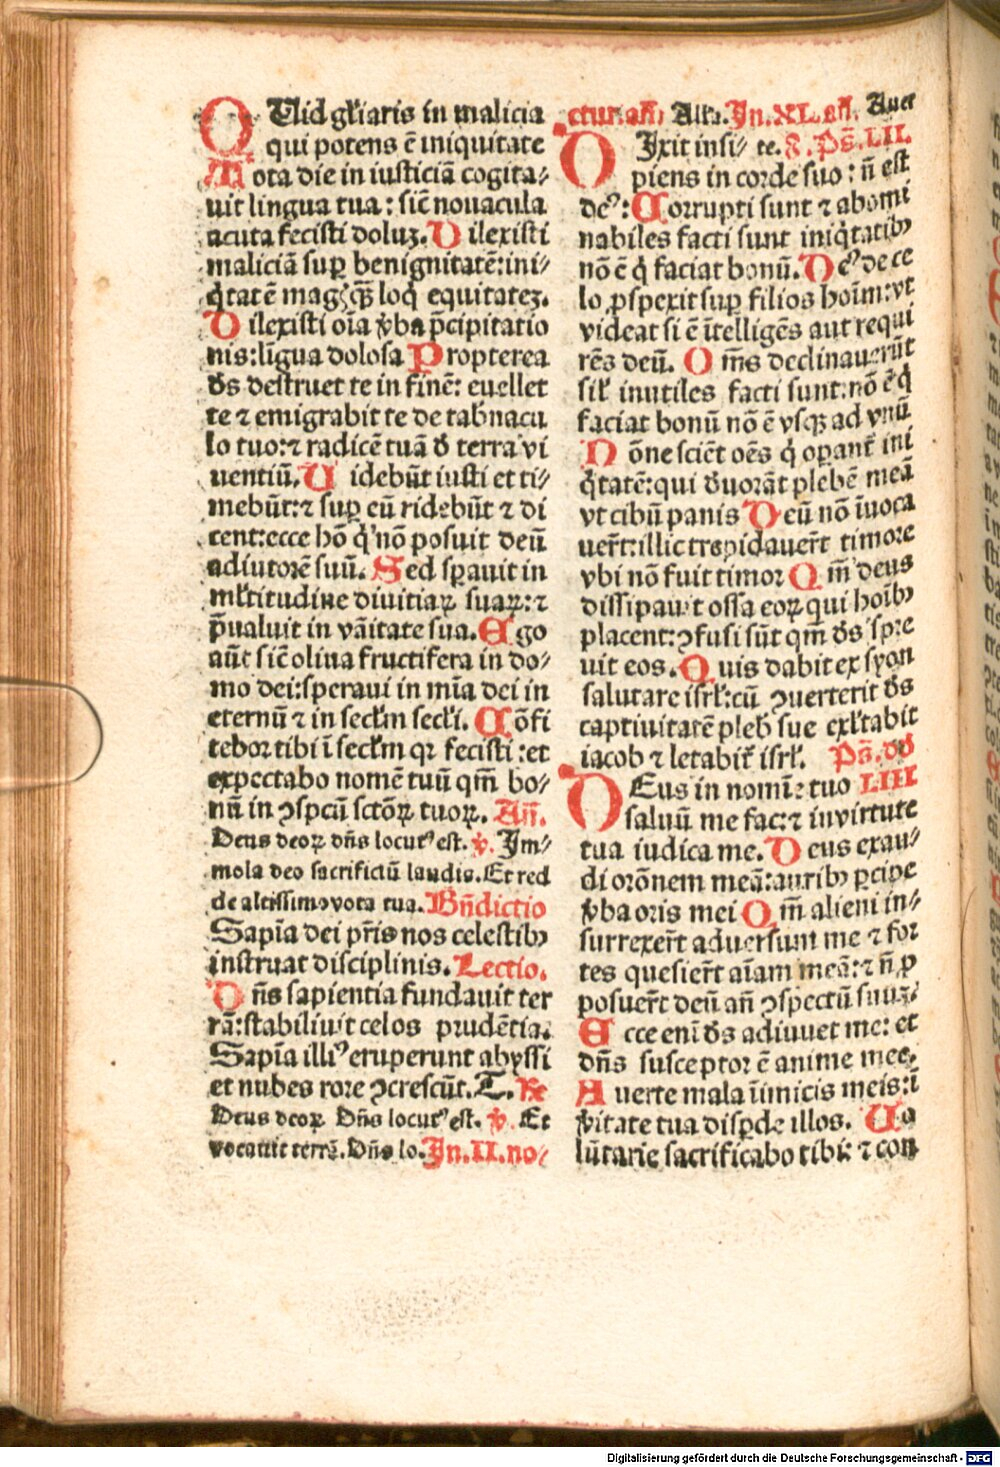 QUid gl'iaris in malicia
qui potens ē iniquitate
Tota die in iusticiā cogita⸗
uit lingua tua: sic̄ nouacula
acuta fecisti doluʒ. Dilexisti
maliciā suꝑ benignitatē: ini⸗
q̇tatē magꝭ q̄ꝫ loq̇ equitateʒ.
Dilexisti oīa ꝟba p̄cipitatio
nis: līgua dolosa Propterea
ds̄ destruet te in finē: euellet
te ⁊ emigrabit te de tabnacu
lo tuo: ⁊ radicē tuā d̄ terra vi
uentiū. Uidebūt iusti et ti⸗
mebūt: ⁊ suꝑ eū ridebūt ⁊ di
cent: ecce hō q̇ nō posuit deū
adiutorē suū. Sed sꝑauit in
ml'titudine diuitiaꝝ suaꝝ: ⁊
p̄ualuit in vāitate sua. Ego
aūt sic̄ oliua fructifera in do⸗
mo dei: speraui in mīa dei in
eternū ⁊ in secl'm secl'i. Cōfi
tebor tibi ī secl'm qꝛ fecisti: et
expectabo nomē tuū qm̄ bo⸗
nū in ꝯspcū sctōꝝ tuoꝝ. An̄.
Deus deoꝝ dn̄s locutꝰ est. ꝟ. Im⸗
mola deo sacrificiū laudis. Et red
de altissimo vota tua. Bn̄dictio
Sapīa dei pr̄is nos celestibꝫ
instruat disciplinis. Lectio.
Dn̄s sapientia fundauit ter
rā: stabiliuit celos prudētia.
Sapīa illiꝰ eruperunt abyssi
et nubes rore ꝯcrescūt. T. ℞
Deus deoꝝ Dn̄s locutꝰ est. ꝟ. Et
vocauit terrā. Dn̄s lo. In. II. no⸗
ctur. an̄ Alla. In. XL. an̄. Auer
DIxit insi⸗ te. F. Ps̄. LII.
piens in corde suo: n̄ est
deꝰ: Corrupti sunt ⁊ abomi
nabiles facti sunt iniq̇tatibꝫ
nō ē q̇ faciat bonū. Deꝰ de ce
lo ꝓspexit suꝑ filios hoīm: vt
videat si ē ītelligēs aut requi
rēs deū. Om̄s declinauerūt
sil' inutiles facti sunt: nō ē q̇
faciat bonū nō ē vsqꝫ ad vnū
Nōne sciēt oēs q̇ oꝑant' ini
q̇tatē: qui d̄uorāt plebē meā
vt cibū panis Deū nō īuoca
uer̄t: illic trepidauer̄t timore
vbi nō fuit timor Qm̄ deus
dissipauit ossa eoꝝ qui hoībꝫ
placent: ꝯfusi sūt qm̄ ds̄ spre
uit eos. Quis dabit ex syon
salutare isrl': cū ꝯuerterit ds̄
captiuitatē pleb' sue exl'tabit
iacob ⁊ letabit' isrl'. Ps̄. dd
DEus in nomīe tuo LIII
saluū me fac: ⁊ in virtute
tua iudica me. Deus exau⸗
di orōnem meā: auribꝫ ꝑcipe
ꝟba oris mei Qm̄ alieni in⸗
surrexer̄t aduersum me ⁊ for
tes quesier̄t aīam meā: ⁊ n̄ ꝓ
posuer̄t deū an̄ ꝯspectū suuʒ.
Ecce eni ds̄ adiuuet me: et
dn̄s susceptor ē anime mee.
Auerte mala īimicis meis: ī
ꝟitate tua disꝑde illos. Uo
lūtarie sacrificabo tibi: ⁊ con
Digitalisierung gefördert durch die Deutsche Forschungsgemeinschaft - DFG